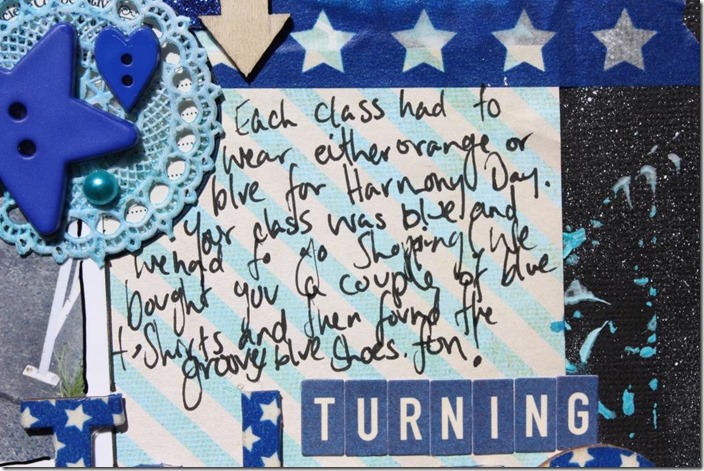 Each class had to
wear either orange or
blue for Harmony Day.
Your class was blue and
we had to go shopping. We
bought you a couple of blue
t'shirts and then found the
groovy blue shoes. fun!
TURNING